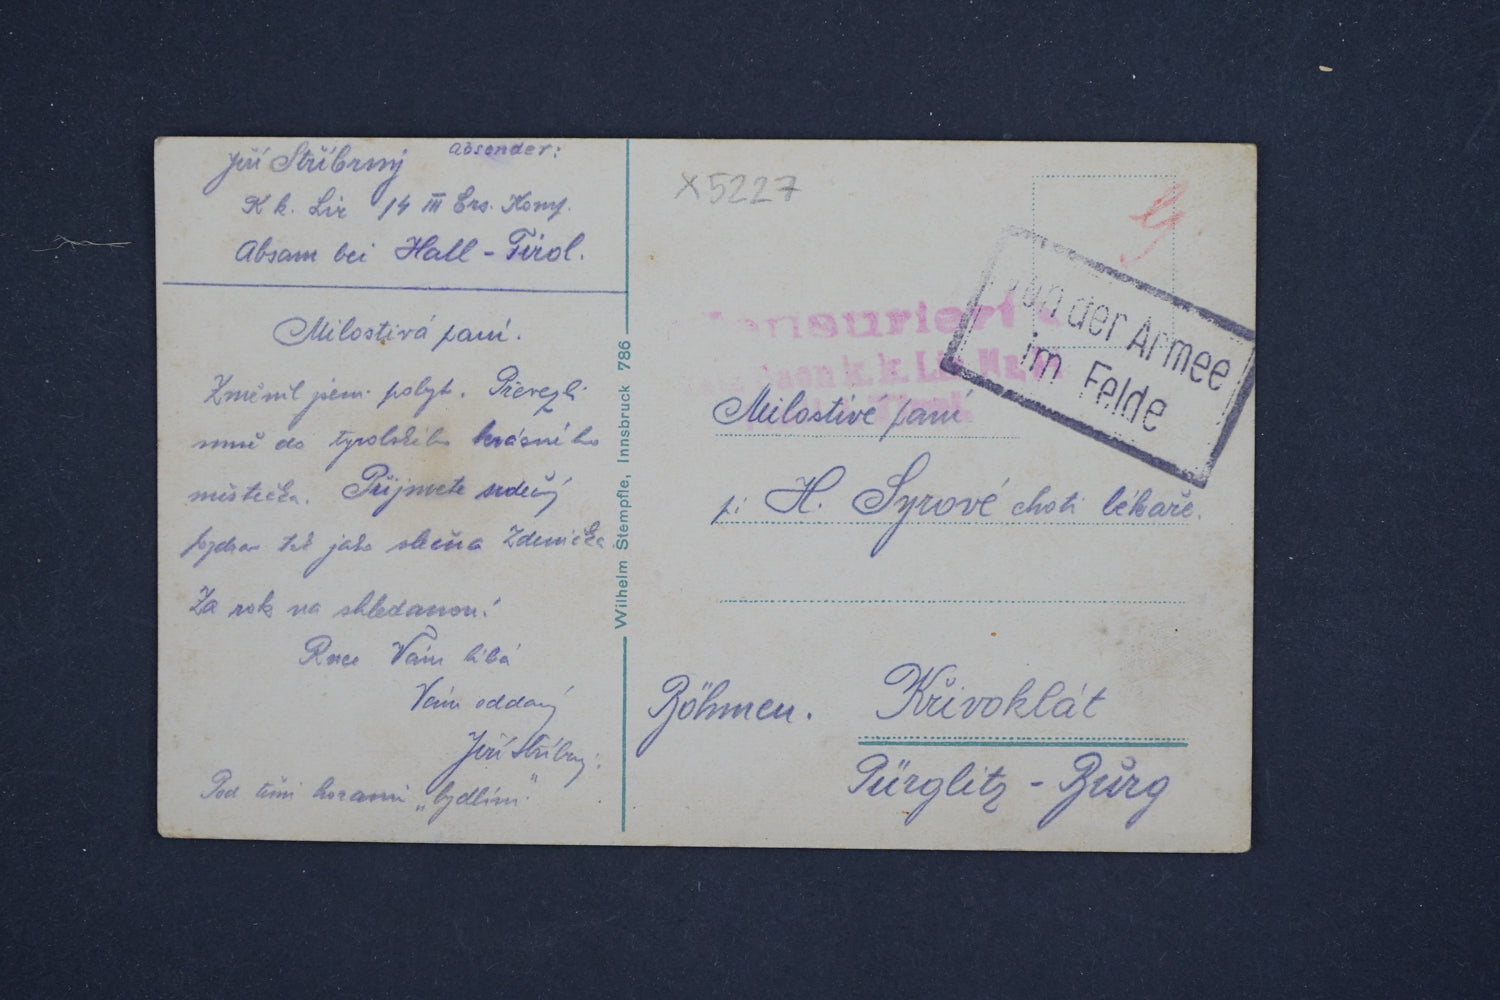 Absender:
Jiří Stříbrný
K k. Lir 14 III Ers. Komp.
Absam bei Hall - Tirol.
Milostivá paní.
Změnil jsem pobyt. Převezli
mně do tyrolského krásného
městečka. Přijmete srdečný
pozdrav též jako slečna Zdenička
Za rok na shledanou!
Ruce Vám líbá
Vám oddaný
Jiří Stříbrný.
Pod těmi horami „bydlím"
Wilhelm Stempfle, Innsbruck 786
X5227
Zensuriert
k. k. Lir.
Von der Armee
im Felde
Milostivé paní
pí H. Syrové choti lékaře.
Böhmen. Křivoklát
Pürglitz - Bürg